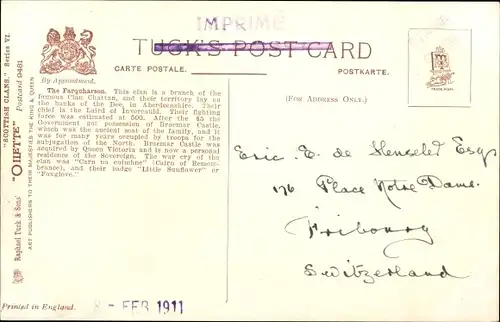 IMPRIMÉ
IMPR
TUCK'S POST CARD
CARTE POSTALE.
POSTKARTE.
By Appointment.
(FOR ADDRESS ONLY.)
The Farquharson. This clan is a branch of the
famous Clan Chattan, and their territory lay on
the banks of the Dee, in Aberdeenshire. Their
chief is the Laird of Invercauld. Their fighting
force was estimated at 500. After the 45 the
Government got possession of Braemar Castle,
which was the ancient seat of the family, and it
was for many years occupied by troops for the
subjugation of the North. Braemar Castle was
acquired by Queen Victoria and is now a personal
residence of the Sovereign. The war cry of the
clan was "Carn na cuimhne" (Cairn of Remem-
brance), and their badge "Little Sunflower" or
"Foxglove."
"SCOTTISH CLANS." Series VI.
"OILETTE" Postcard 9481
Raphael Tuck & Sons'
ART PUBLISHERS TO THEIR MAJESTIES THE KING & QUEEN
Printed in England.
Eric. E. de Henseler Esq
176 Place Notre Dame.
Fribourg
Switzerland
8 - FEB 1911